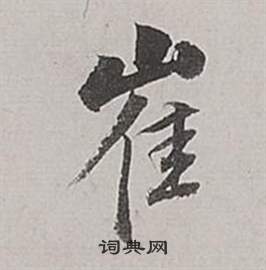 崔
词典网